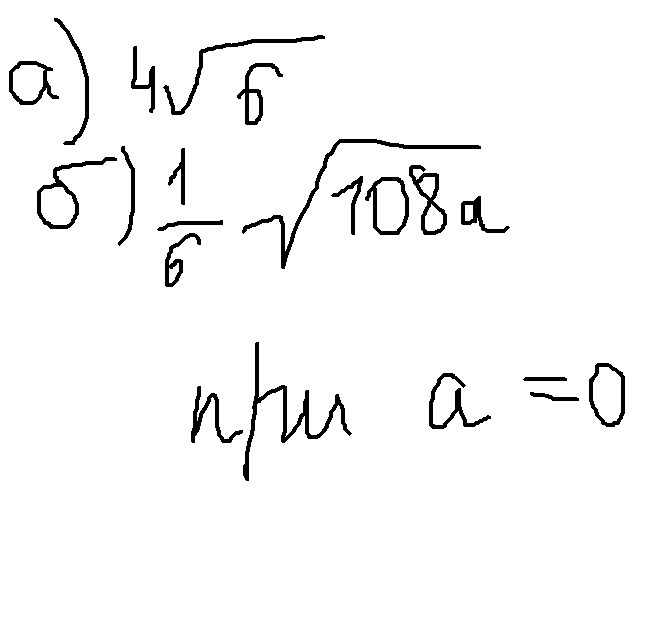 а) 4√6
б) 1/6 √108a
при a = 0